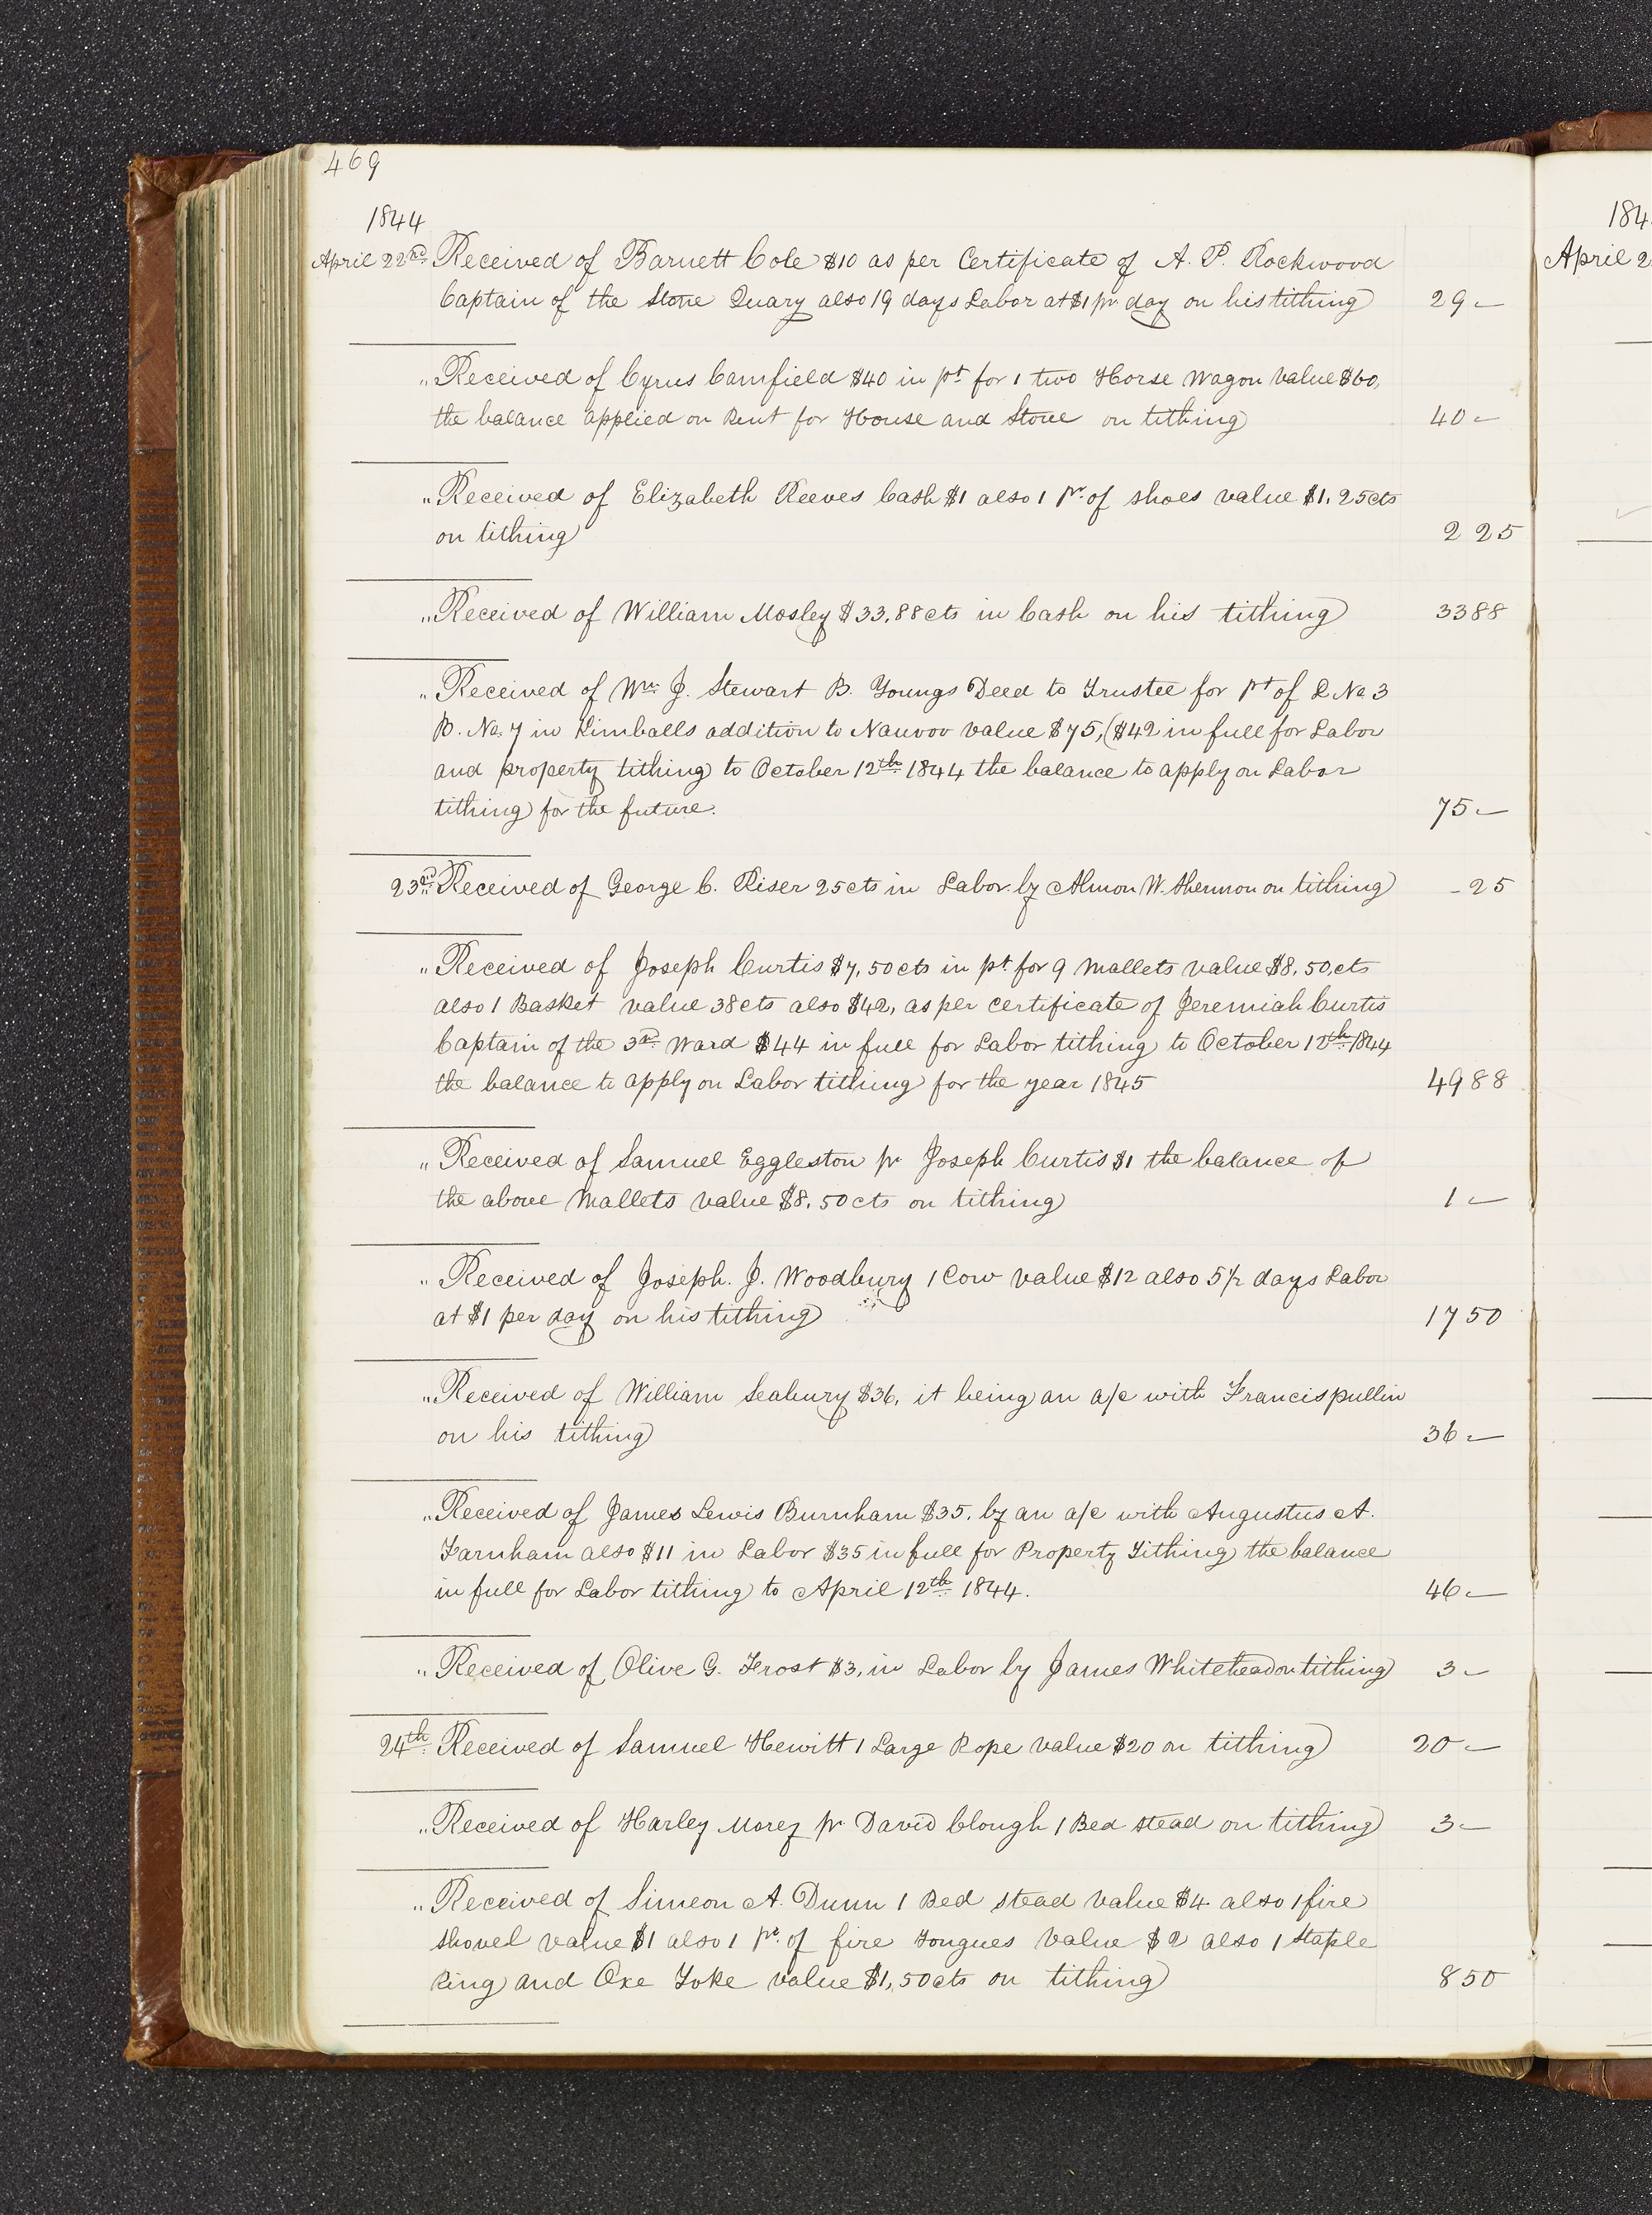 469
1844
April 22nd Received of Barnett Cole $10 as per Certificate of A. P. Rockwood
Captain of the Stone Quary also 19 days Labor at $1 pr day on his tithing 29 —
" Received of Cyrus Camfield $40 in pt for 1 two Horse Wagon value $60,
the balance applied on Rent for House and Stove on tithing 40 —
" Received of Elizabeth Reeves Cash $1 also 1 pr. of shoes value $1.25cts
on tithing 2 25
" Received of William Mosley $33.88cts in Cash on his tithing 33 88
" Received of Wm. J. Stewart B. Youngs Deed to Trustee for pt of L No 3
B. No. 7 in Kimballs addition to Nauvoo value $75, ($42 in full for Labor
and property tithing to October 12th 1844 the balance to apply on Labor
tithing for the future. 75 —
23rd Received of George C. Riser 25cts in Labor by Almon W. Shermon on tithing - 25
" Received of Joseph Curtis $7,50cts in pt for 9 Mallets value $8.50.cts
also 1 Basket value 38cts also $42, as per certificate of Jeremiah Curtis
Captain of the 3rd Ward $44 in full for Labor tithing to October 12th 1844
the balance to apply on Labor tithing for the year 1845 49 88
" Received of Samuel Eggleston pr Joseph Curtis $1 the balance of
the above Mallets value $8.50cts on tithing 1 —
" Received of Joseph. J. Woodbury 1 Cow value $12 also 5 1/2 days Labor
at $1 per day on his tithing 17 50
" Received of William Seabury $36, it being an a/c with Francis pullin
on his tithing 36 —
" Received of James Lewis Burnham $35. by an a/c with Augustus A.
Farnham also $11 in Labor $35 in full for Property Tithing the balance
in full for Labor tithing to April 12th 1844. 46 —
" Received of Olive G. Frost $3, in Labor by James Whitehead on tithing 3 —
24th Received of Samuel Hewitt 1 Large Rope value $20 on tithing 20 —
" Received of Harley Morey pr David Clough 1 Bed stead on tithing 3 —
" Received of Simeon A. Dunn 1 Bed stead value $4 also 1 fire
shovel value $1 also 1 pr. of fire tongues value $2 also 1 Staple
Ring and Oxe Yoke value $1,50cts on tithing 8 50
184
April 2